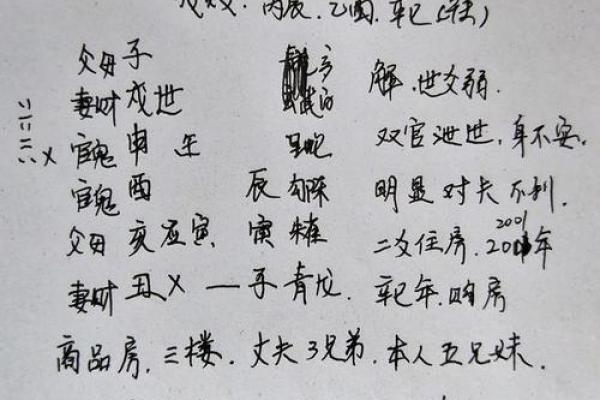 丙辰.乙酉.辛巳
父母子 解.世爻弱.
妻财戌世 双官泄世,身不安.
官鬼申 螣蛇
官鬼酉 辰勾陈 明显对夫不利.
父母亥应寅 寅朱雀 二爻住房.2001年
妻财丑X一子青龙. 辛巳年.购房
商品房.三楼.丈夫3兄弟.本人五兄妹.